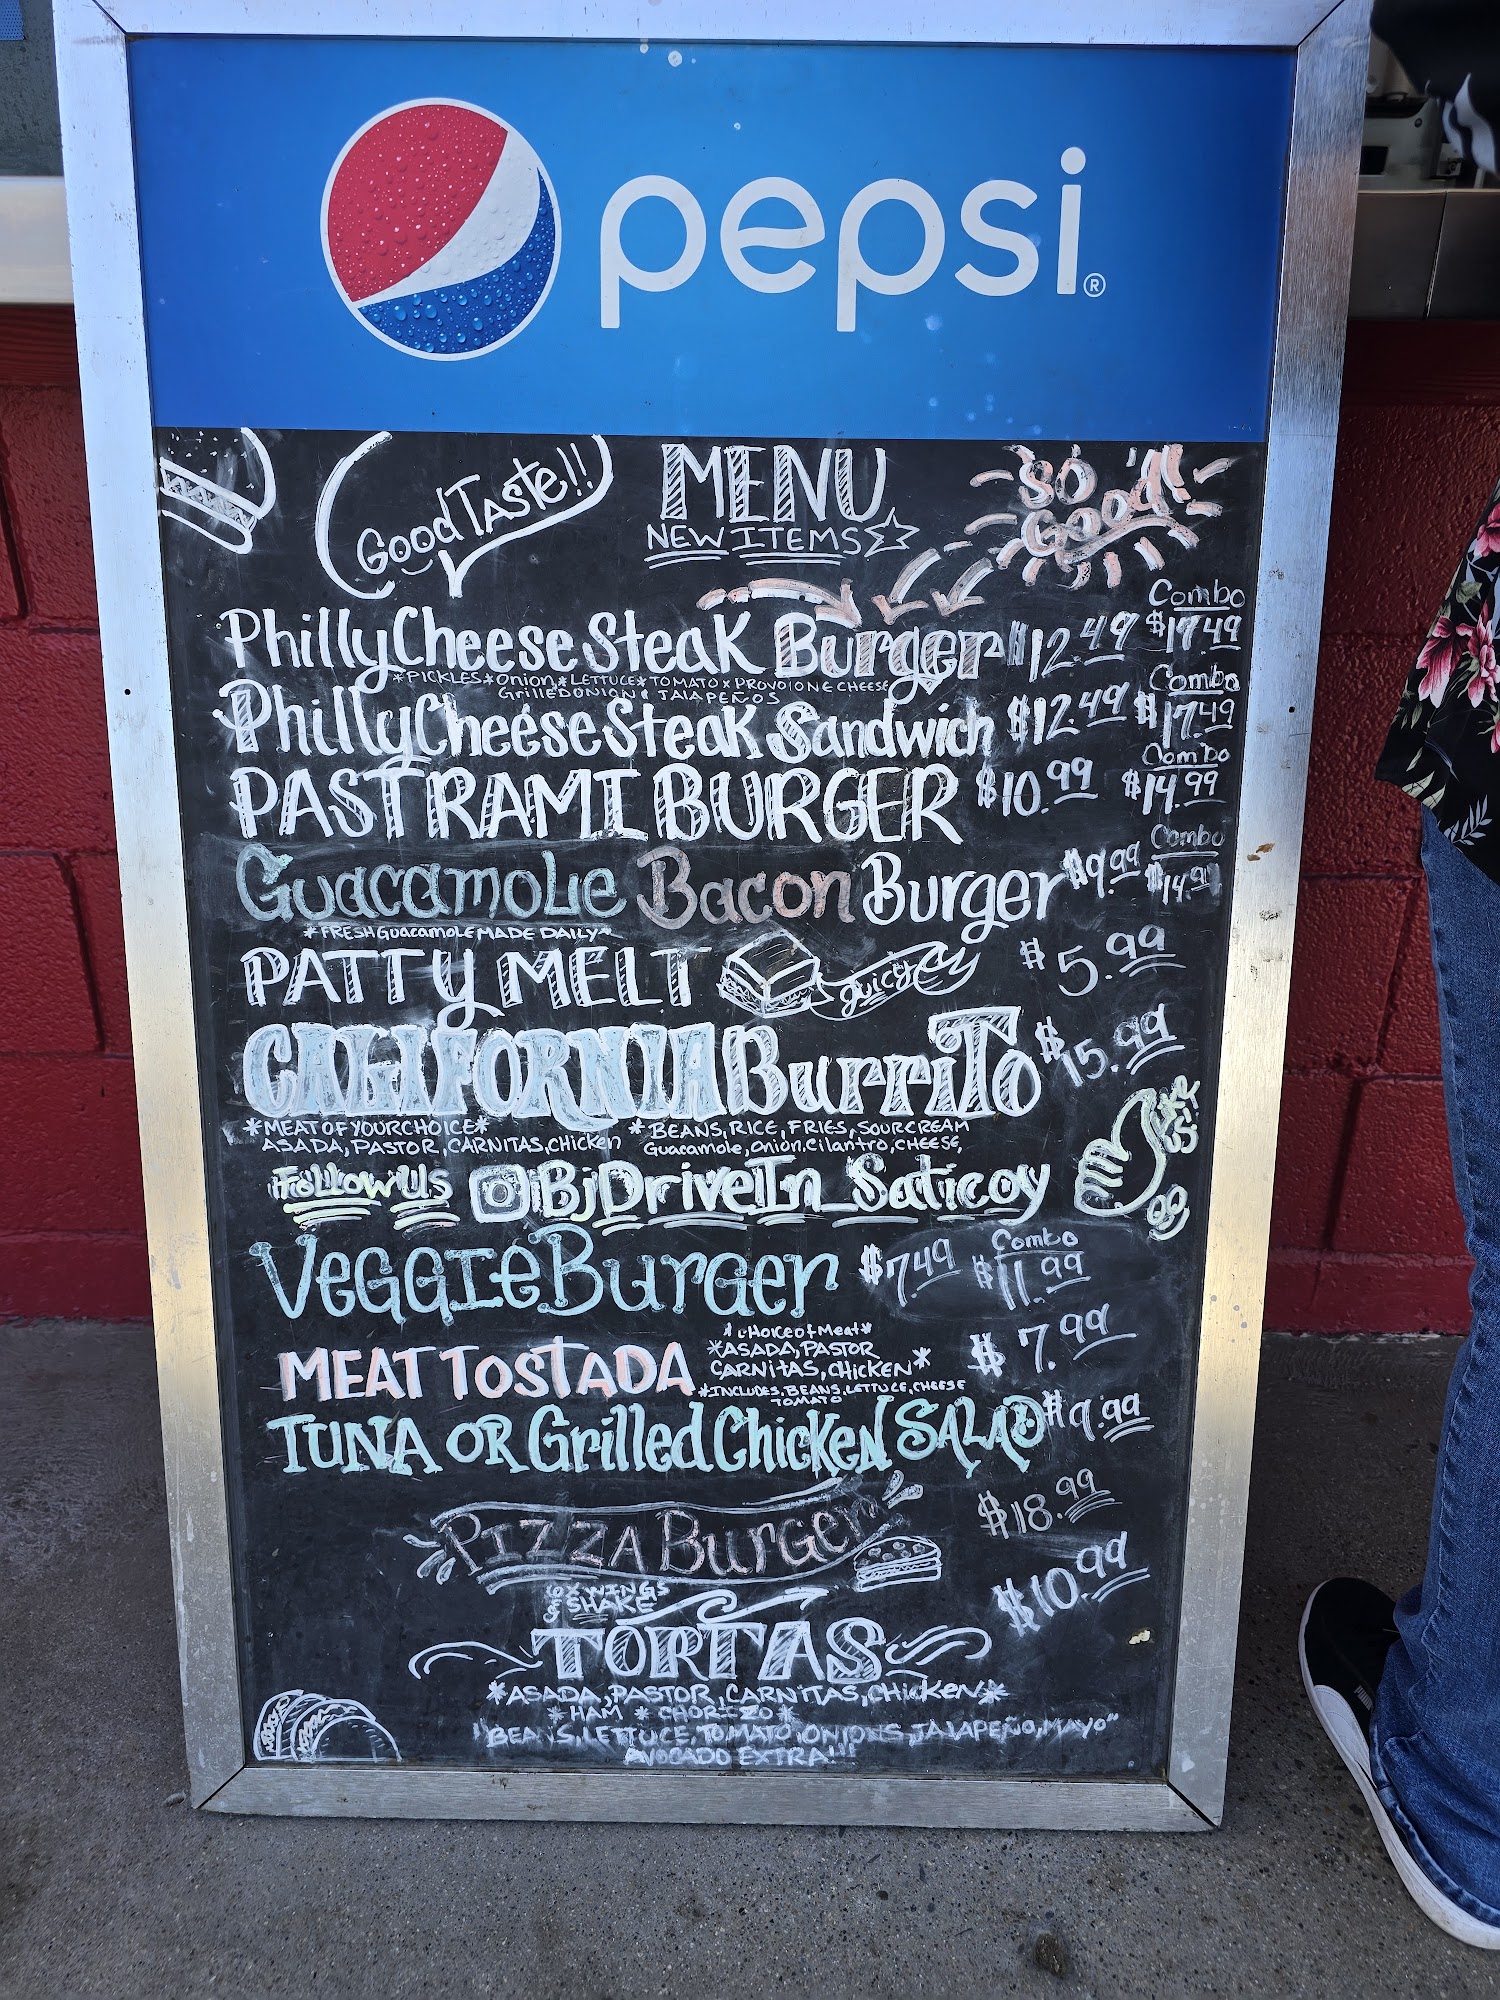 pepsi®
Good Taste!!
MENU
NEW ITEMS
SO Good!
Combo
Philly Cheese Steak Burger $12.49 $17.49
*PICKLES*Onion*LETTUCE*TOMATO x PROVOLONE CHEESE
Grilled ONION & JALAPEÑOS
Combo
Philly Cheese Steak Sandwich $12.49 $17.49
Combo
PASTRAMI BURGER $10.99 $14.99
Combo
Guacamole Bacon Burger $9.99 $14.99
*FRESH Guacamole MADE DAILY~
PATTY MELT Juicy $5.99
CALIFORNIA Burrito $15.99
*MEAT OF YOUR CHOICE* *BEANS, RICE, FRIES, SOUR CREAM
ASADA, PASTOR, CARNITAS, Chicken Guacamole, onion, Cilantro, CHEESE,
Follow Us BjDriveIn_Saticoy
Combo
Veggie Burger $7.49 $11.99
choice of Meat*
MEAT TOSTADA *ASADA, PASTOR $7.99
CARNITAS, CHICKEN*
*INCLUDES, BEANS, LETTUCE, CHEESE
TOMATO
TUNA OR Grilled Chicken SALAD $9.99
Pizza Burger $18.99
6x WINGS
& SHAKE
TORTAS $10.99
*ASADA, PASTOR, CARNITAS, CHicKen*
*HAM * CHORIZO*
"BEANS, LETTUCE, TOMATO, ONIONS, JALAPEÑO, MAYO"
AVOCADO EXTRA!!!